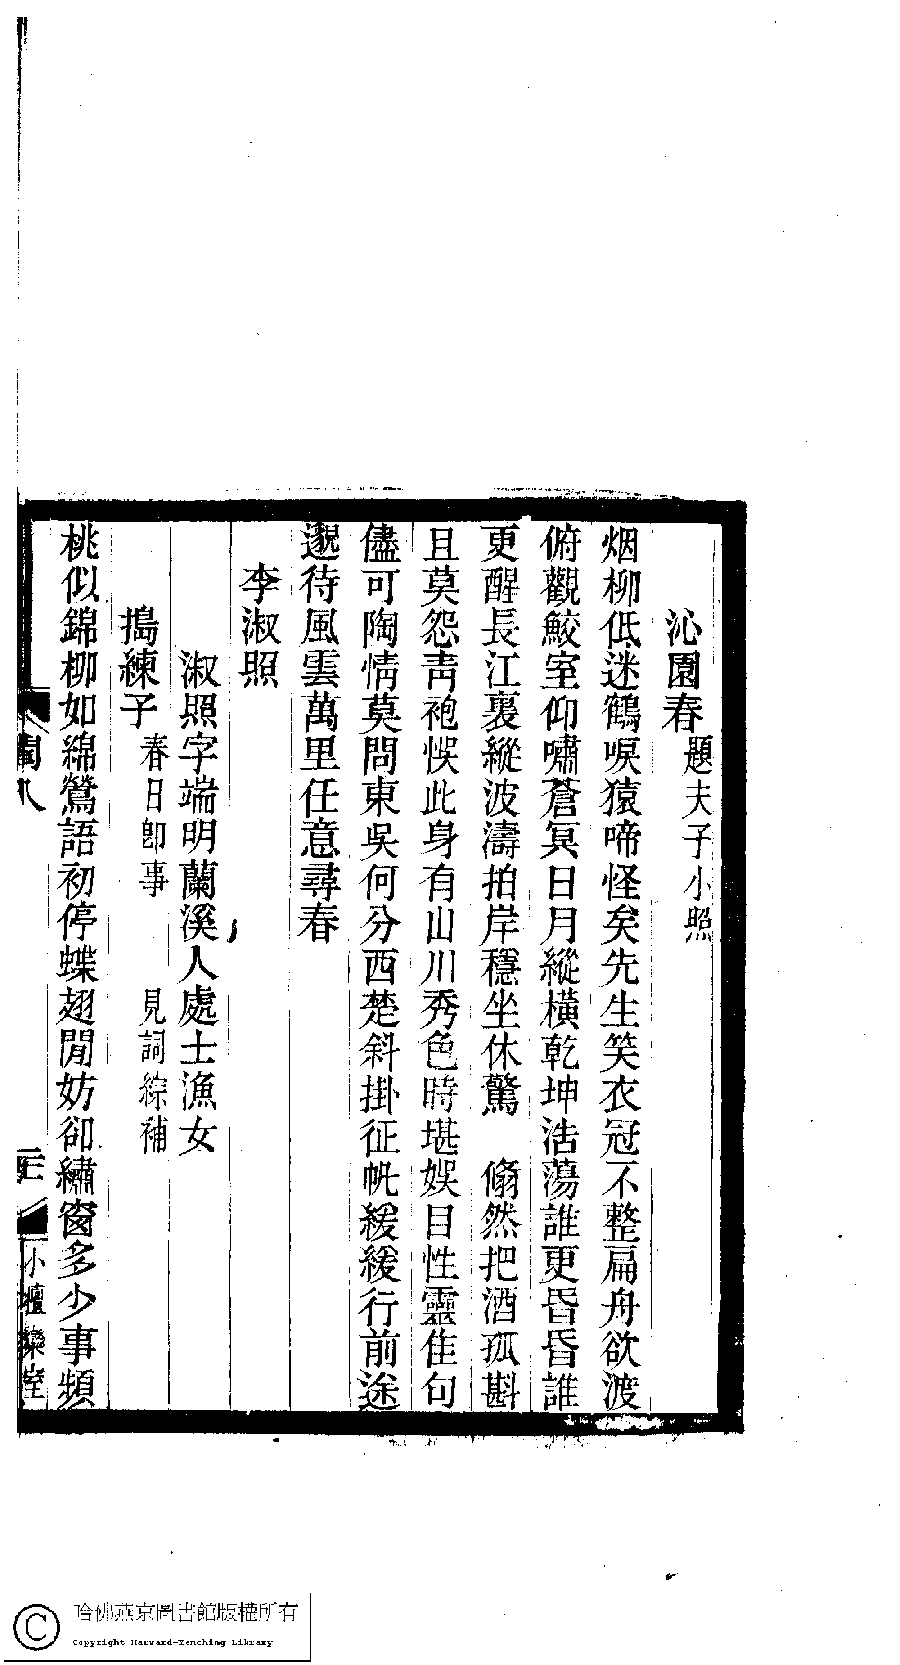 沁園春 題夫子小照
烟柳低迷鶴唳猿啼怪矣先生笑衣冠不整扁舟欲渡
俯觀鮫室仰嘯蒼冥日月縱橫乾坤浩蕩誰更昏昏誰
更醒長江裏縱波濤拍岸穩坐休驚　翛然把酒孤斟
且莫怨靑袍悞此身有山川秀色時堪娛目性靈佳句
儘可陶情莫問東吳何分西楚斜掛征帆緩緩行前途
邈待風雲萬里任意尋春
李淑照
淑照字端明蘭溪人處士漁女
搗練子 春日卽事　見詞綜補
桃似錦柳如綿鶯語初停蝶翅閒妨卻繡窗多少事頻
閨八
小檀欒室
哈佛燕京圖書館版權所有
Copyright Harvard-Yenching Library